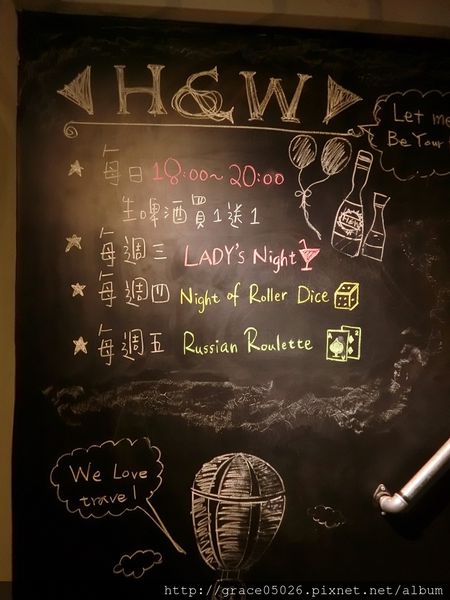 H&W
Let me
Be Your
每日 18:00~20:00
生啤酒買1送1
每週三 LADY's Night
每週四 Night of Roller Dice
每週五 Russian Roulette
We Love
travel
http://grace05026.pixnet.net/album